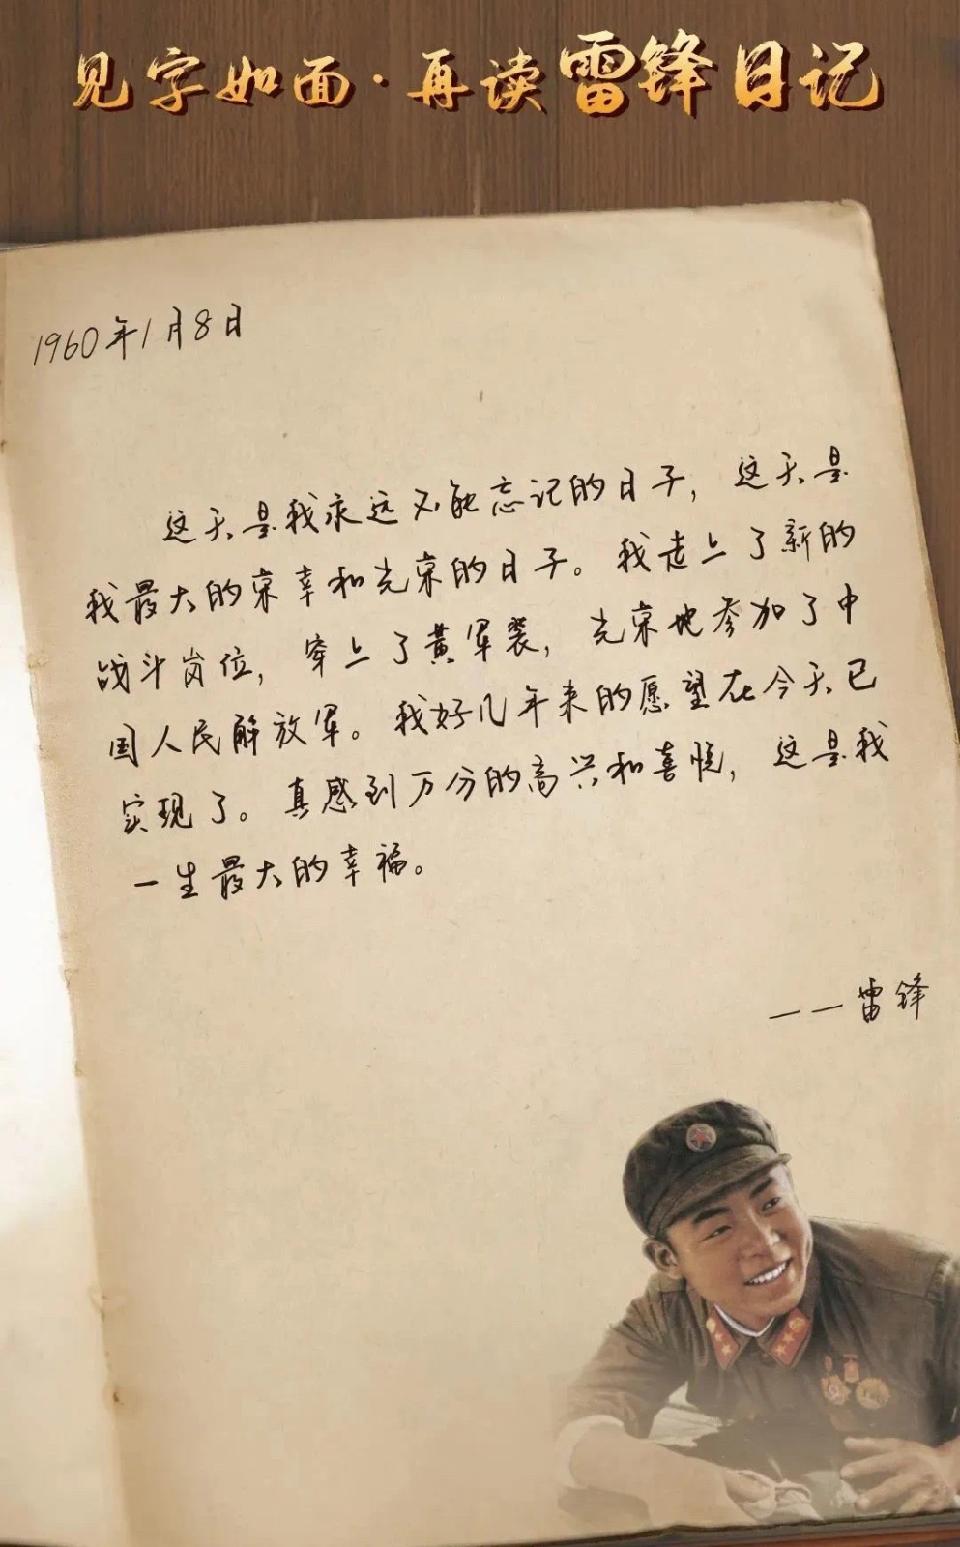 见字如面·再读雷锋日记
1960年1月8日
这天是我永远不能忘记的日子，这天是
我最大的荣幸和光荣的日子。我走上了新的
战斗岗位，穿上了黄军装，光荣地参加了中
国人民解放军。我好几年来的愿望在今天已
实现了。真感到万分的高兴和喜悦，这是我
一生最大的幸福。
——雷锋